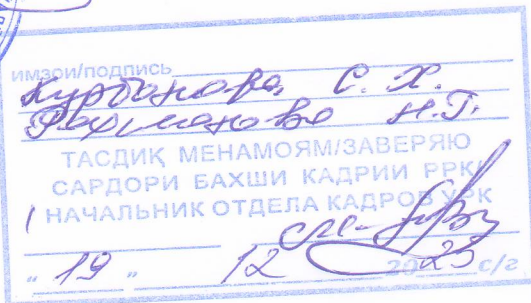 имзои/подпись
Курбанова С. Х.
Рахманова Н.Г.
ТАСДИҚ МЕНАМОЯМ/ЗАВЕРЯЮ
САРДОРИ БАХШИ КАДРИИ РРК/
НАЧАЛЬНИК ОТДЕЛА КАДРОВ УРК
" 19 " 12 2023 с/г